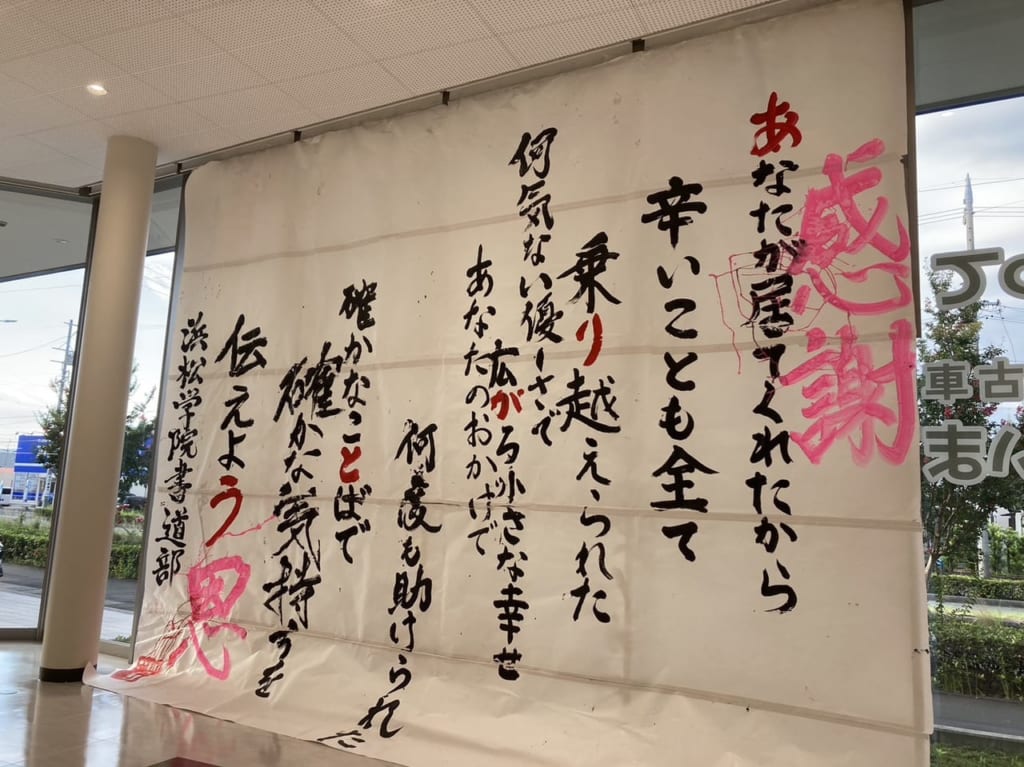 感謝
あなたが居てくれたから
辛いことも全て
乗り越えられた
何気ない優しさで
広がる小さな幸せ
あなたのおかげで
何度も助けられた
確かなことばで
確かな気持ちを
伝えよう
恩
浜松学院書道部
古車